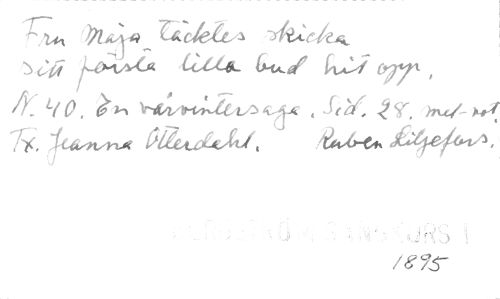 Fru Maja täcktes skicka
sitt första lilla bud hit opp.
N. 40. En vårvintersaga. Sid. 28. mel-not.
Tx. Jeanna Otterdahl. Ruben Liljefors.
1895